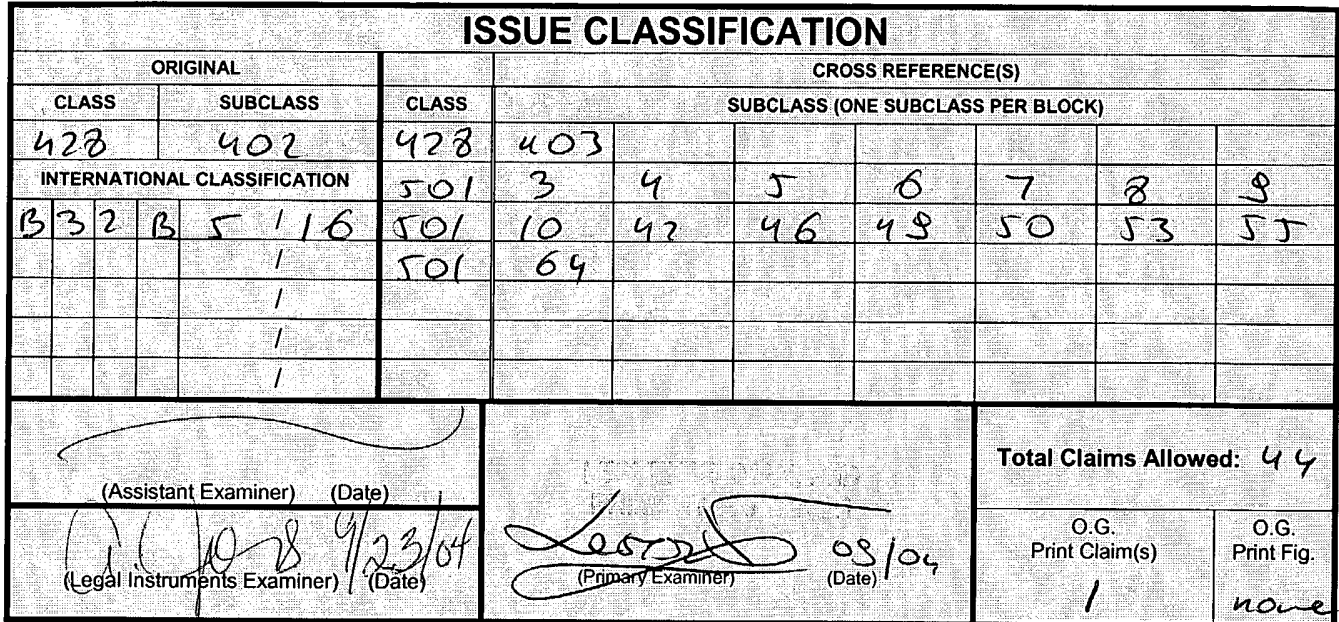 ISSUE CLASSIFICATION
ORIGINAL CROSS REFERENCE(S)
CLASS SUBCLASS CLASS SUBCLASS (ONE SUBCLASS PER BLOCK)
428 402 428 403
INTERNATIONAL CLASSIFICATION 501 3 4 5 6 7 8 9
B 3 2 B 5 / 16 501 10 42 46 49 50 53 55
/ 501 64
/
/
/
Total Claims Allowed: 44
(Assistant Examiner) (Date)
9/23/04 09/04
(Legal Instruments Examiner) (Date) (Primary Examiner) (Date)
O.G. Print Claim(s) O.G. Print Fig.
1 none